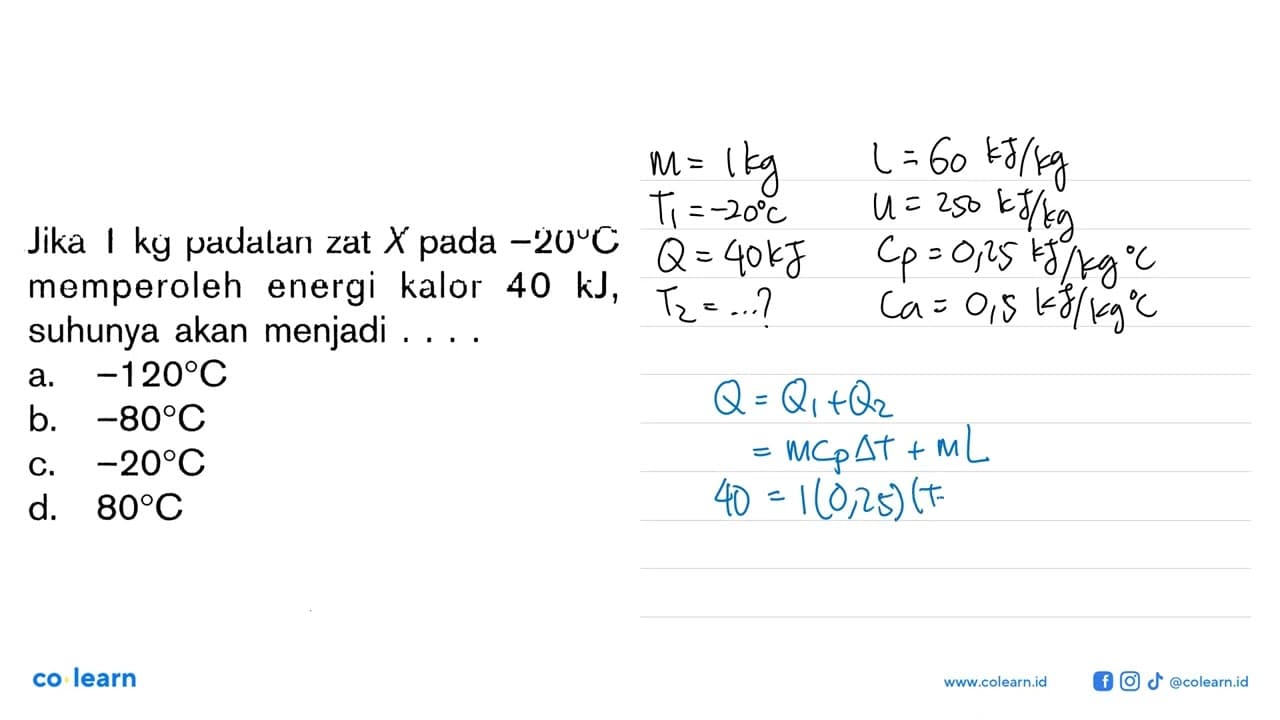 Jika 1 kg padatan zat X pada −20°C
memperoleh energi kalor 40 kJ,
suhunya akan menjadi . . . .
a. −120°C
b. −80°C
c. −20°C
d. 80°C
m = 1 kg
T₁ = −20°C
Q = 40 kJ
T₂ = ...?
L = 60 kJ/kg
U = 250 kJ/kg
Cp = 0,25 kJ/kg°C
Ca = 0,5 kJ/kg°C
Q = Q₁ + Q₂
= m Cp ΔT + m L
40 = 1 (0,25) (T-
co learn
www.colearn.id
@colearn.id